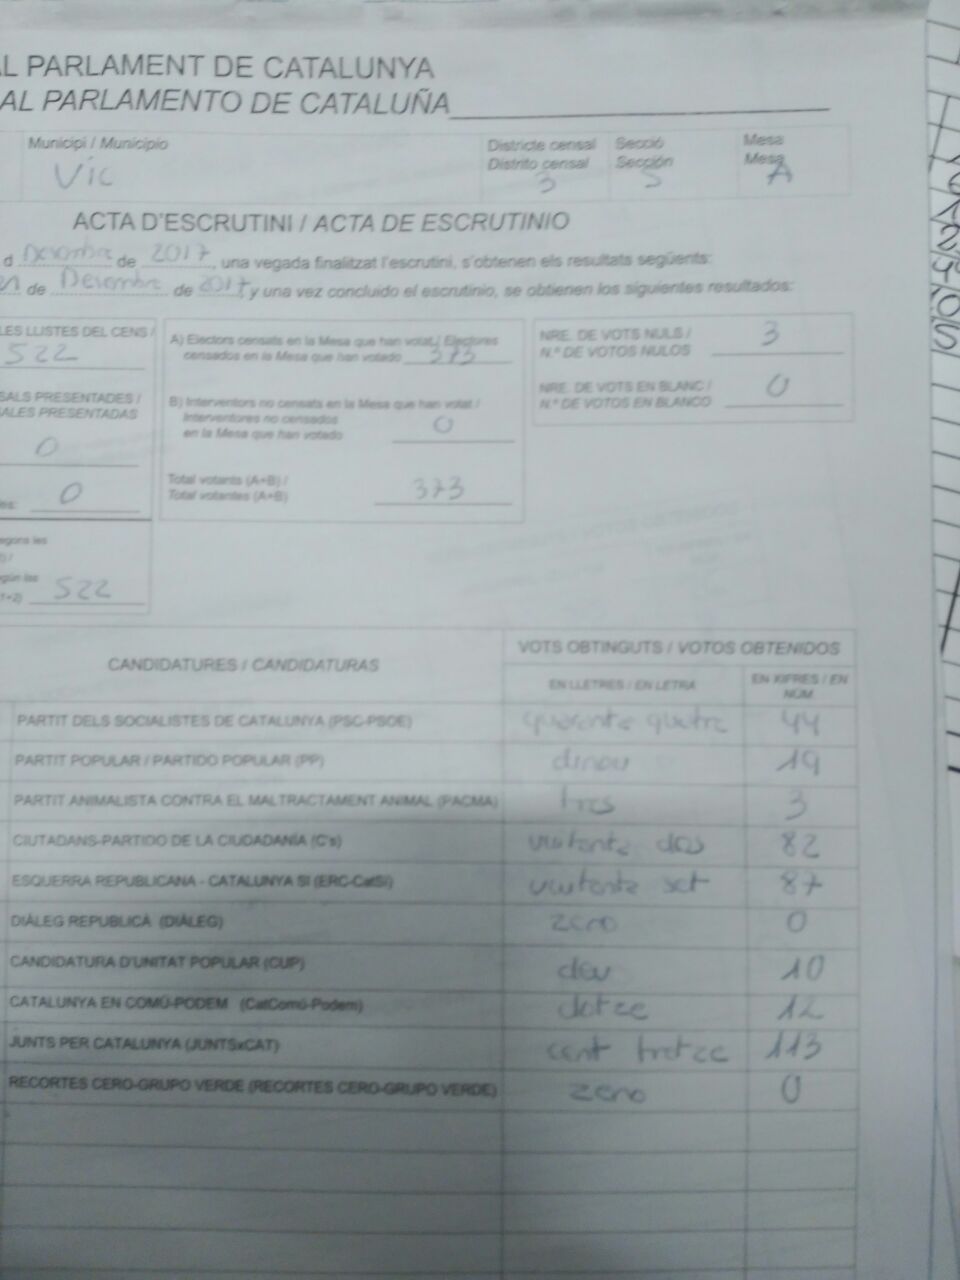 AL PARLAMENT DE CATALUNYA
AL PARLAMENTO DE CATALUÑA
Municipi / Municipio
Vic
Districte censal
Distrito censal
3
Secció
Sección
5
Mesa
Mesa
A
ACTA D'ESCRUTINI / ACTA DE ESCRUTINIO
d Desembre de 2017, una vegada finalitzat l'escrutini, s'obtenen els resultats següents:
de Desembre de 2017, y una vez concluido el escrutinio, se obtienen los siguientes resultados:
LES LLISTES DEL CENS /
522
SALS PRESENTADES /
ALES PRESENTADAS
0
es: 0
egons les
gún las
1+2) 522
A) Electors censats en la Mesa que han votat / Electores
censados en la Mesa que han votado 373
B) Interventors no censats en la Mesa que han votat /
Interventores no censados
en la Mesa que han votado 0
Total votants (A+B) /
Total votantes (A+B) 373
NRE. DE VOTS NULS /
N.º DE VOTOS NULOS 3
NRE. DE VOTS EN BLANC /
N.º DE VOTOS EN BLANCO 0
CANDIDATURES / CANDIDATURAS
VOTS OBTINGUTS / VOTOS OBTENIDOS
EN LLETRES / EN LETRA
EN XIFRES / EN
NÚM.
PARTIT DELS SOCIALISTES DE CATALUNYA (PSC-PSOE) quaranta quatre 44
PARTIT POPULAR / PARTIDO POPULAR (PP) dinou 19
PARTIT ANIMALISTA CONTRA EL MALTRACTAMENT ANIMAL (PACMA) tres 3
CIUTADANS-PARTIDO DE LA CIUDADANÍA (C's) vuitanta dos 82
ESQUERRA REPUBLICANA - CATALUNYA SÍ (ERC-CatSí) vuitanta set 87
DIÀLEG REPUBLICÀ (DIÀLEG) zero 0
CANDIDATURA D'UNITAT POPULAR (CUP) deu 10
CATALUNYA EN COMÚ-PODEM (CatComú-Podem) dotze 12
JUNTS PER CATALUNYA (JUNTSxCAT) cent tretze 113
RECORTES CERO-GRUPO VERDE (RECORTES CERO-GRUPO VERDE) zero 0